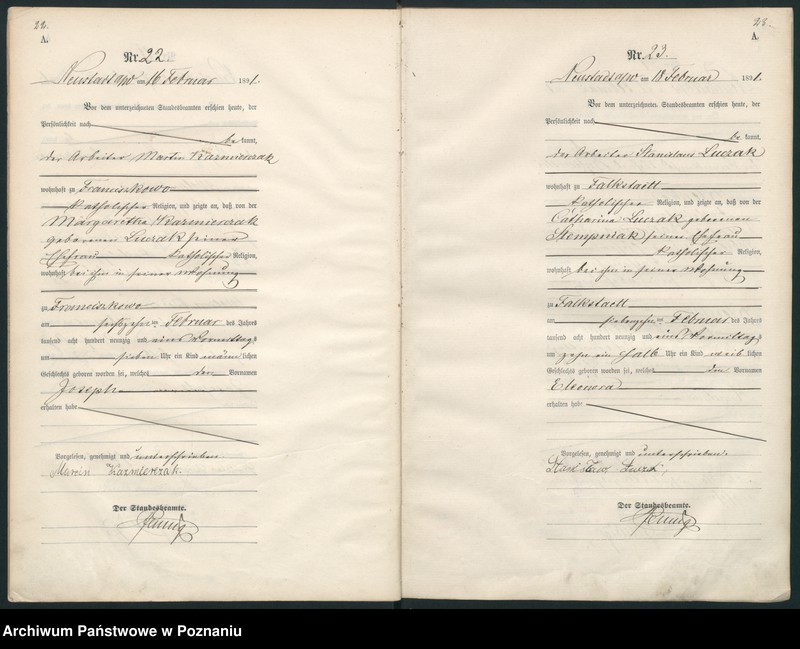 22.
A.
Nr. 22
Neustadt a/W am 16 Februar 1891.
Vor dem unterzeichneten Standesbeamten erschien heute, der
Persönlichkeit nach
be kannt,
der Arbeiter Martin Kazmierczak
wohnhaft zu Franciszkowo
katholischer Religion, und zeigte an, daß von der
Margaretha Kazmierczak
geborenen Luczak seiner
Ehefrau katholischer Religion,
wohnhaft bei ihm in seiner Wohnung
zu Franciszkowo
am sechszehnten Februar des Jahres
tausend acht hundert neunzig und eins Vormittags
um sieben Uhr ein Kind männlichen
Geschlechts geboren worden sei, welches den Vornamen
Joseph
erhalten habe
Vorgelesen, genehmigt und unterschrieben
Marcin Kazmierczak.
Der Standesbeamte.
23.
A.
Nr. 23.
Neustadt a/W am 18 Februar 1891.
Vor dem unterzeichneten Standesbeamten erschien heute, der
Persönlichkeit nach
be kannt,
der Arbeiter Stanislaus Luczak
wohnhaft zu Falkstaedt
katholischer Religion, und zeigte an, daß von der
Catharina Luczak geborenen
Stempniak seiner Ehefrau
katholischer Religion,
wohnhaft bei ihm in seiner Wohnung
zu Falkstaedt
am siebenzehnten Februar des Jahres
tausend acht hundert neunzig und eins Vormittags
um zehn ein halb Uhr ein Kind weiblichen
Geschlechts geboren worden sei, welches den Vornamen
Eleonora
erhalten habe
Vorgelesen, genehmigt und unterschrieben.
Der Standesbeamte.
Archiwum Państwowe w Poznaniu